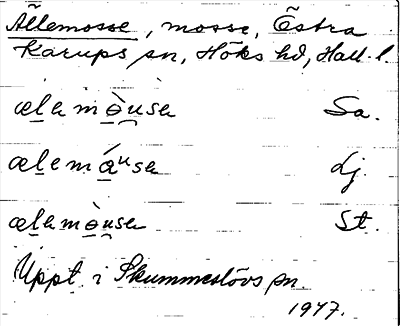 Ällemosse, mosse, Östra
Karups sn, Höks hd, Hall. l.
ælemòuse Sa.
ælemáuse Lj.
ælemòuse St.
Uppt. i Skummeslövs sn.
1947.